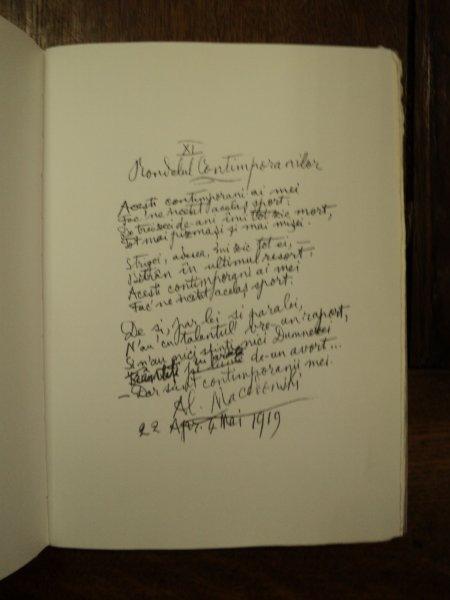 XI
Rondelul Contimporanilor
Acești contimporani ai mei
Fac ne'ncetat același sport:
De treizeci de-ani îmi tot zic mort,
Tot mai pizmași și mai mișei.
Strigoi, adesea, îmi zic tot ei, —
Bătrân în ultimul resort;
Acești contimporani ai mei
Fac ne'ncetat același sport.
De și, par lei și paralei,
N'au cu talentul vre-un raport,
Și n'au nici sfinți nici Dumnezei
de-un avort...
— Dar sunt contimporanii mei.
Al. Macedonski
22 Apr. 4 Mai 1919